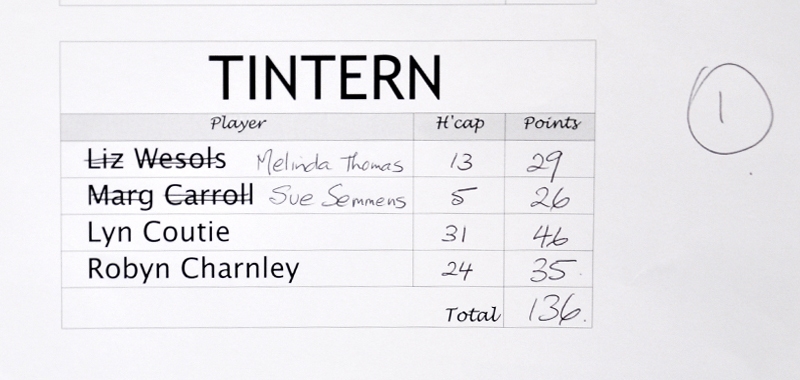 TINTERN
Player H'cap Points
Liz Wesols Melinda Thomas 13 29
Marg Carroll Sue Semmens 5 26
Lyn Coutie 31 46
Robyn Charnley 24 35
Total 136
1